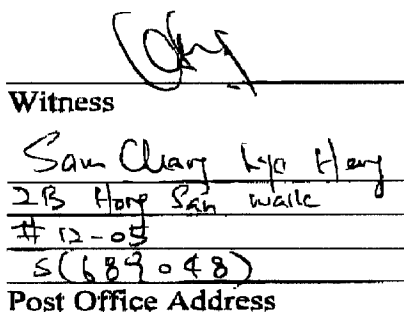 Witness
Sam Chang Heng
2B Hong San walk
# 12-05
S(689048)
Post Office Address